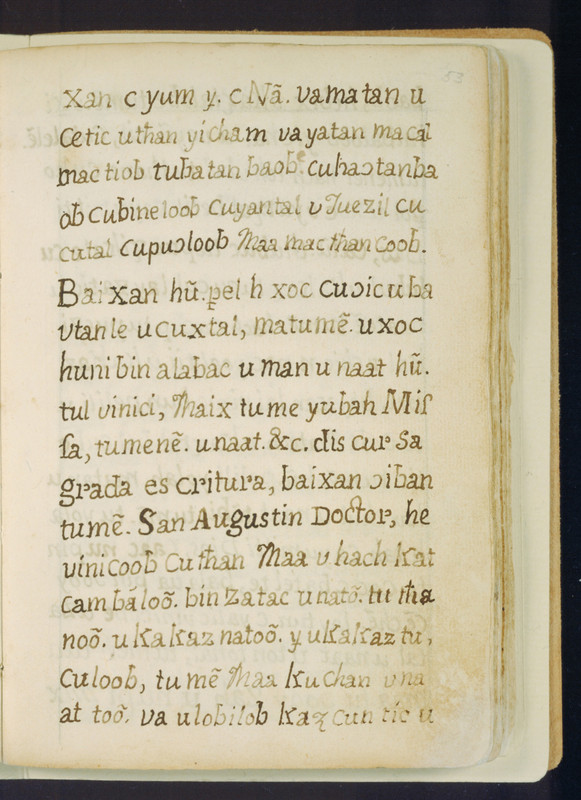 53
xan c yum y. c Nã. va matan u
cetic uthan yicham va yatan macal
mac tiob tubatan baobe. cuhaɔtanba
ob cubineloob cuyantal v Juezil cu
cutal cupuɔloob Maa mac than coob.
Bai xan hũ.pel h xoc cuɔic u ba
vtan le u cuxtal, matumẽ. u xoc
huni bin alabac u man u naat hũ.
tul vinici, Maix tu me yubah Miſ
ſa, tumenẽ. unaat. &c. dis cur Sa
grada es critura, baixan ɔiban
tumẽ. San Augustin Doctor, he
vinicoob Cu than Maa v hach Kat
cambáloõ. bin Zatac unatõ. tu tha
noõ. u Ka Kaz natoõ. y u Ka Kaz tu,
Culoob, tu mẽ Maa Ku chan u na
at toõ. va ulobilob Kaz cun tic u